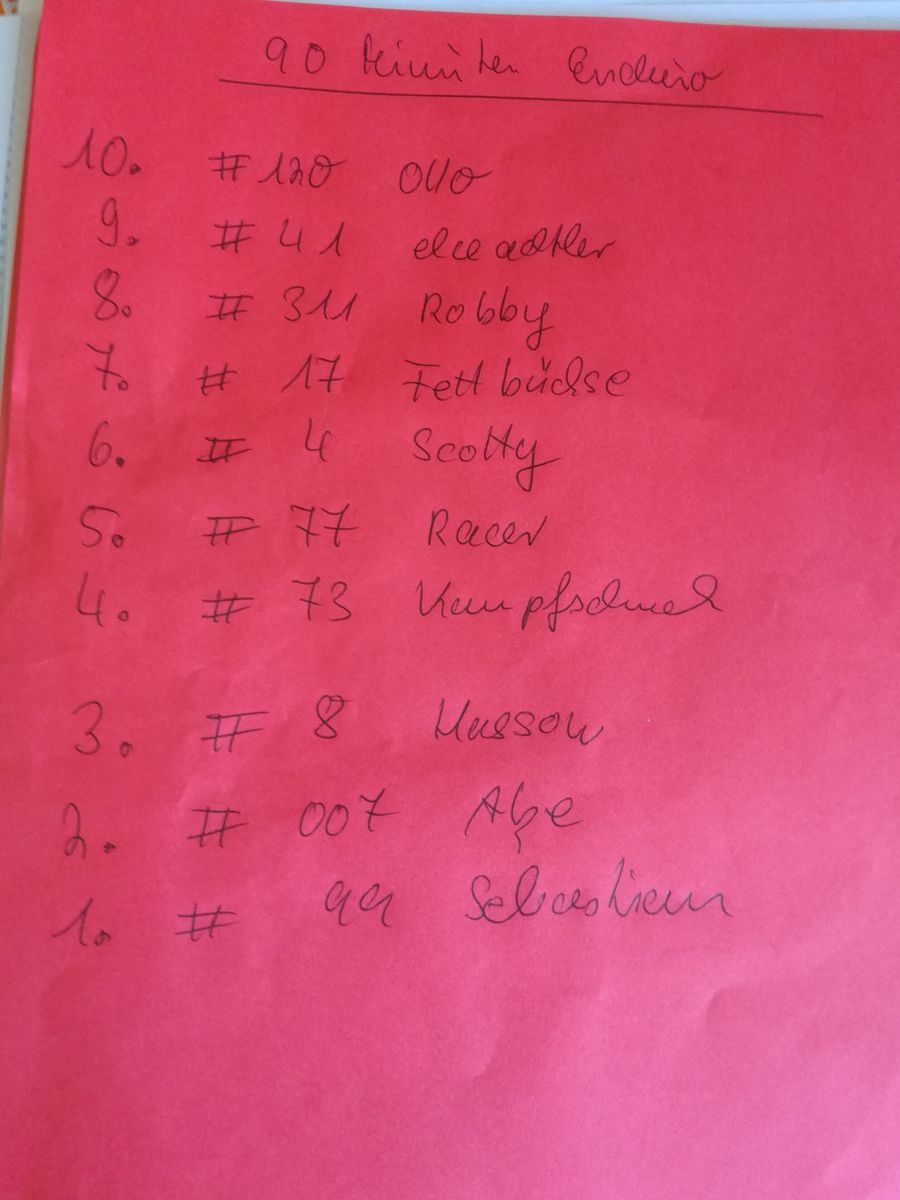 90 Minuten Enduro
10. # 120 Ollo
9. # 41
8. # 311 Robby
7. # 17 Fettbüchse
6. # 4 Scotty
5. # 77 Racer
4. # 73
3. # 8
2. # 007
1. # 99 Sebastian